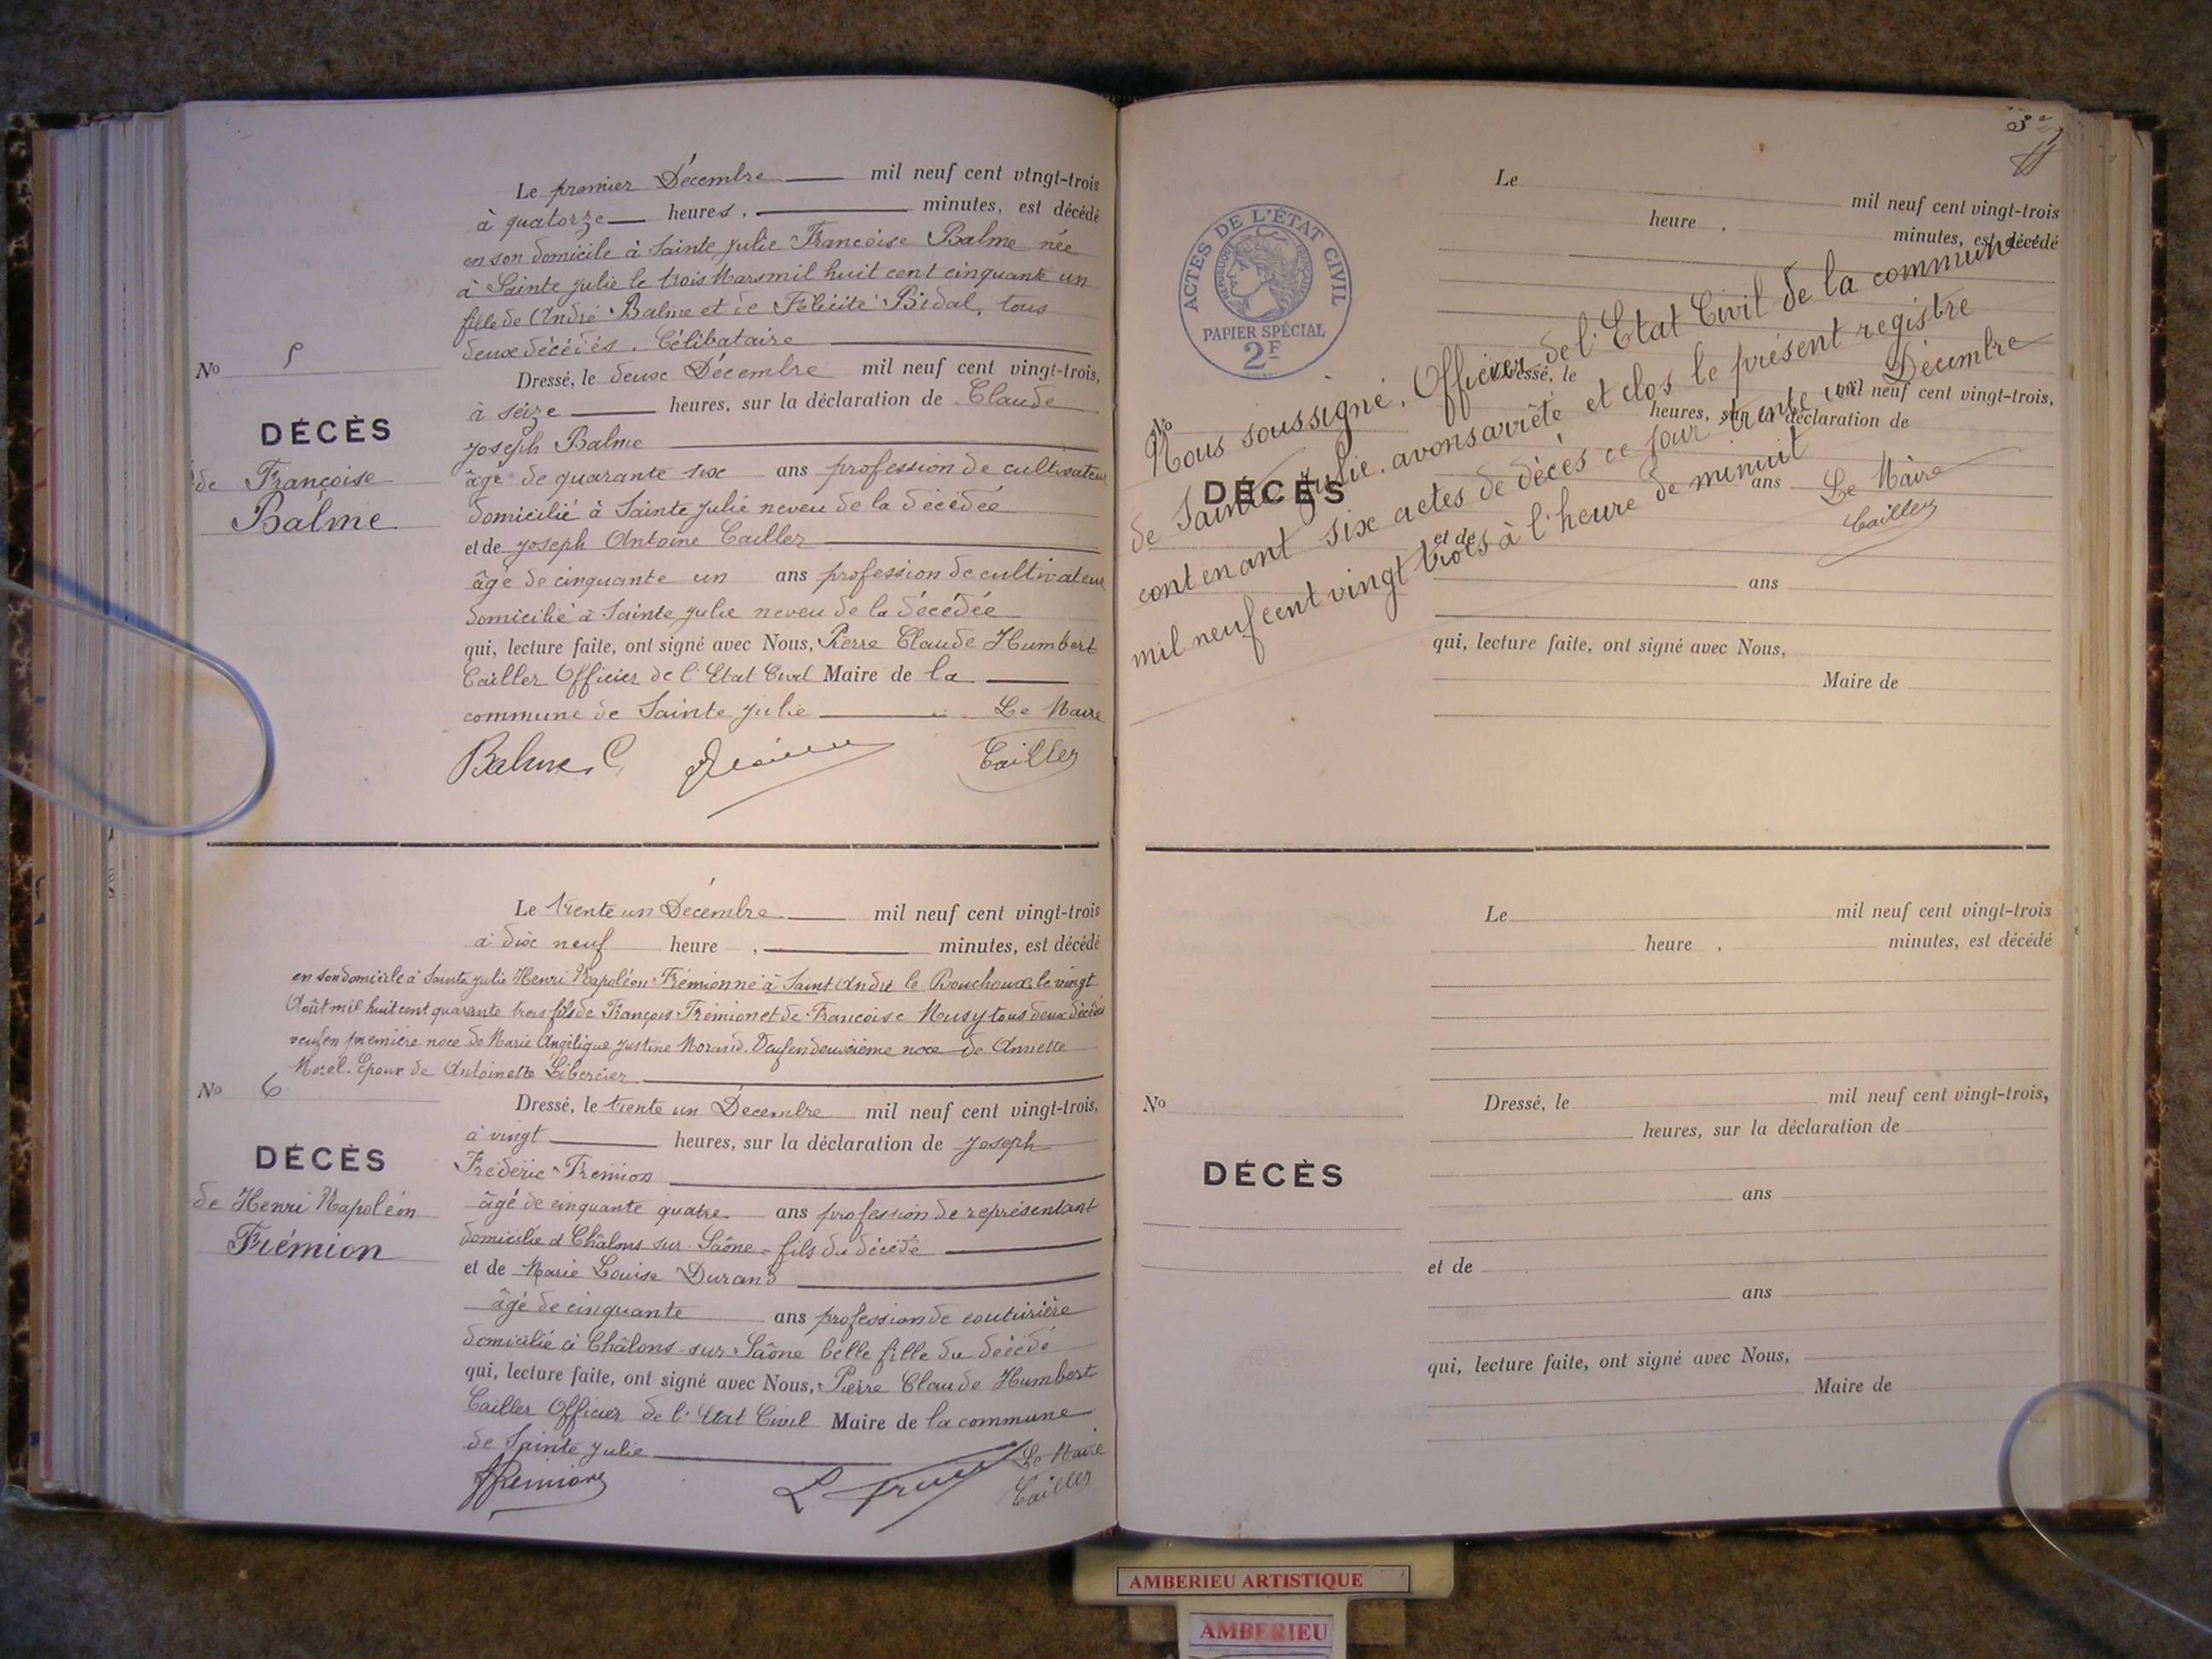 Le premier Décembre mil neuf cent vingt-trois
à quatorze heures, minutes, est décédé
en son domicile à Sainte Julie Françoise Balme née
à Sainte Julie le trois Mars mil huit cent cinquante un
fille de André Balme et de Félicité Bidal, tous
deux décédés. Célibataire
No 5
Dressé, le deux Décembre mil neuf cent vingt-trois,
à seize heures, sur la déclaration de Claude
Joseph Balme
DÉCÈS
de Françoise
Balme
âgé de quarante six ans profession de cultivateur
domicilié à Sainte Julie neveu de la décédée
et de Joseph Antoine Cailler
âgé de cinquante un ans profession de cultivateur
domicilié à Sainte Julie neveu de la décédée
qui, lecture faite, ont signé avec Nous, Pierre Claude Humbert
Cailler Officier de l'Etat Civil Maire de la
commune de Sainte Julie Le Maire
Balme C Cailler
Le trente un Décembre mil neuf cent vingt-trois
à dix neuf heure, minutes, est décédé
en son domicile à Sainte Julie Henri Napoléon Frémion né à Saint André le Bouchoux le vingt
Août mil huit cent quarante trois fils de François Frémion et de Françoise Musy tous deux décédés
veuf en première noce de Marie Angélique Justine Morand. Veuf en deuxième noce de Annette
Morel. Epoux de Antoinette Libercier
No 6
Dressé, le trente un Décembre mil neuf cent vingt-trois,
à vingt heures, sur la déclaration de Joseph
Frédéric Frémion
DÉCÈS
de Henri Napoléon
Frémion
âgé de cinquante quatre ans profession de représentant
domicilié à Châlons sur Saône fils du décédé
et de Marie Louise Durand
âgé de cinquante ans profession de couturière
domicilié à Châlons-sur-Saône belle fille du décédé
qui, lecture faite, ont signé avec Nous, Pierre Claude Humbert
Cailler Officier de l'Etat Civil Maire de la commune
de Sainte Julie Le Maire
Frémion Cailler
ACTES DE L'ÉTAT CIVIL
RÉPUBLIQUE FRANÇAISE
PAPIER SPÉCIAL
2F
Le mil neuf cent vingt-trois
heure , minutes, est décédé
Dressé, le mil neuf cent vingt-trois,
heures, sur la déclaration de
No
DÉCÈS
ans
et de
ans
qui, lecture faite, ont signé avec Nous,
Maire de
Nous soussigné, Officier de l'Etat Civil de la commune
de Sainte Julie, avons arrêté et clos le présent registre
contenant six actes de décès ce jour trente un Décembre
mil neuf cent vingt trois à l'heure de minuit
Le Maire
Cailler
Le mil neuf cent vingt-trois
heure , minutes, est décédé
No
Dressé, le mil neuf cent vingt-trois,
heures, sur la déclaration de
DÉCÈS
ans
et de
ans
qui, lecture faite, ont signé avec Nous,
Maire de
AMBERIEU ARTISTIQUE
AMBERIEU